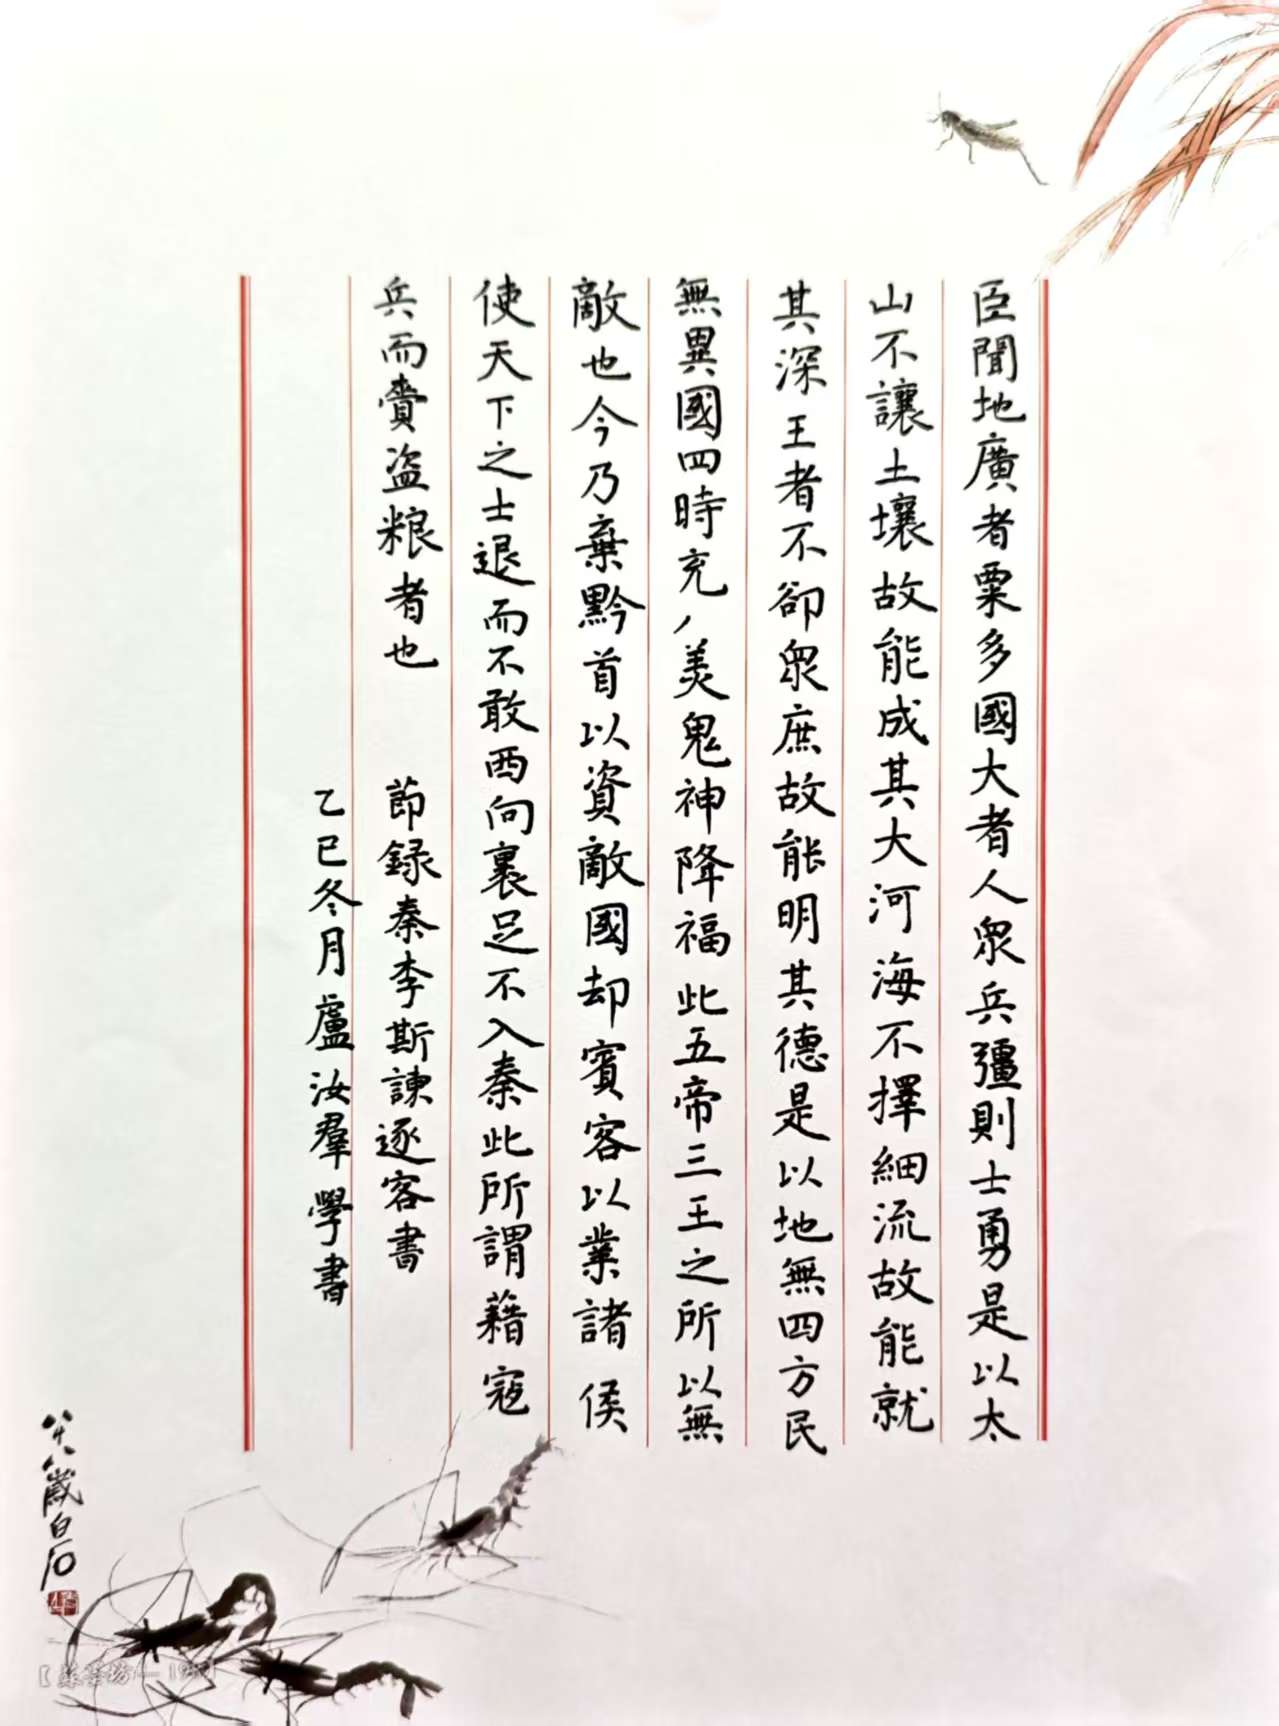 臣聞地廣者粟多國大者人衆兵彊則士勇是以太
山不讓土壤故能成其大河海不擇細流故能就
其深王者不卻衆庶故能明其德是以地無四方民
無異國四時充美鬼神降福此五帝三王之所以無
敵也今乃棄黔首以資敵國却賓客以業諸侯
使天下之士退而不敢西向裹足不入秦此所謂藉寇
兵而賫盗粮者也 節録秦李斯諫逐客書
乙巳冬月盧汝羣學書
八十八歲白石